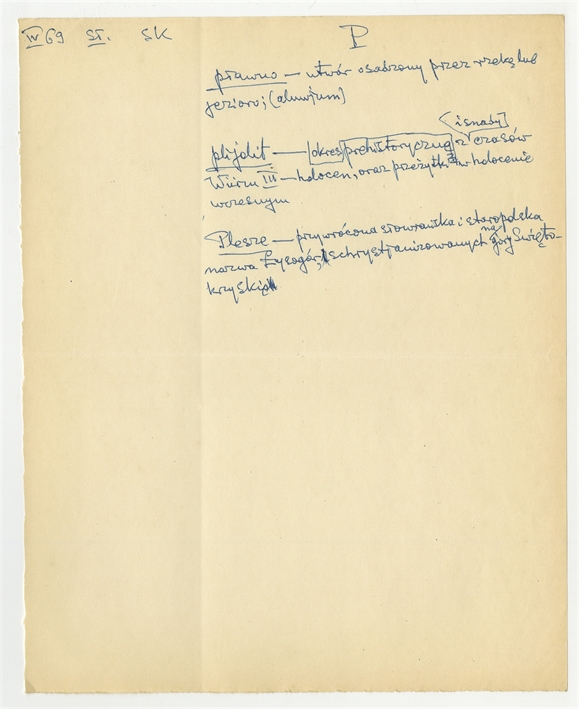 IV 69 SŁ. SK
P
pławno — utwór osadzony przez rzekę lub
jezioro; (aluwium)
[i snady]
plijolit — [okres] prehistoryczny z czasów
Würm III — holocen, oraz przeżytki w holocenie
wczesnym
Plesze — przywrócona słowiańska i staropolska
nazwa Łysogór, schrystjanizowanych na góry Święto-
krzyskie